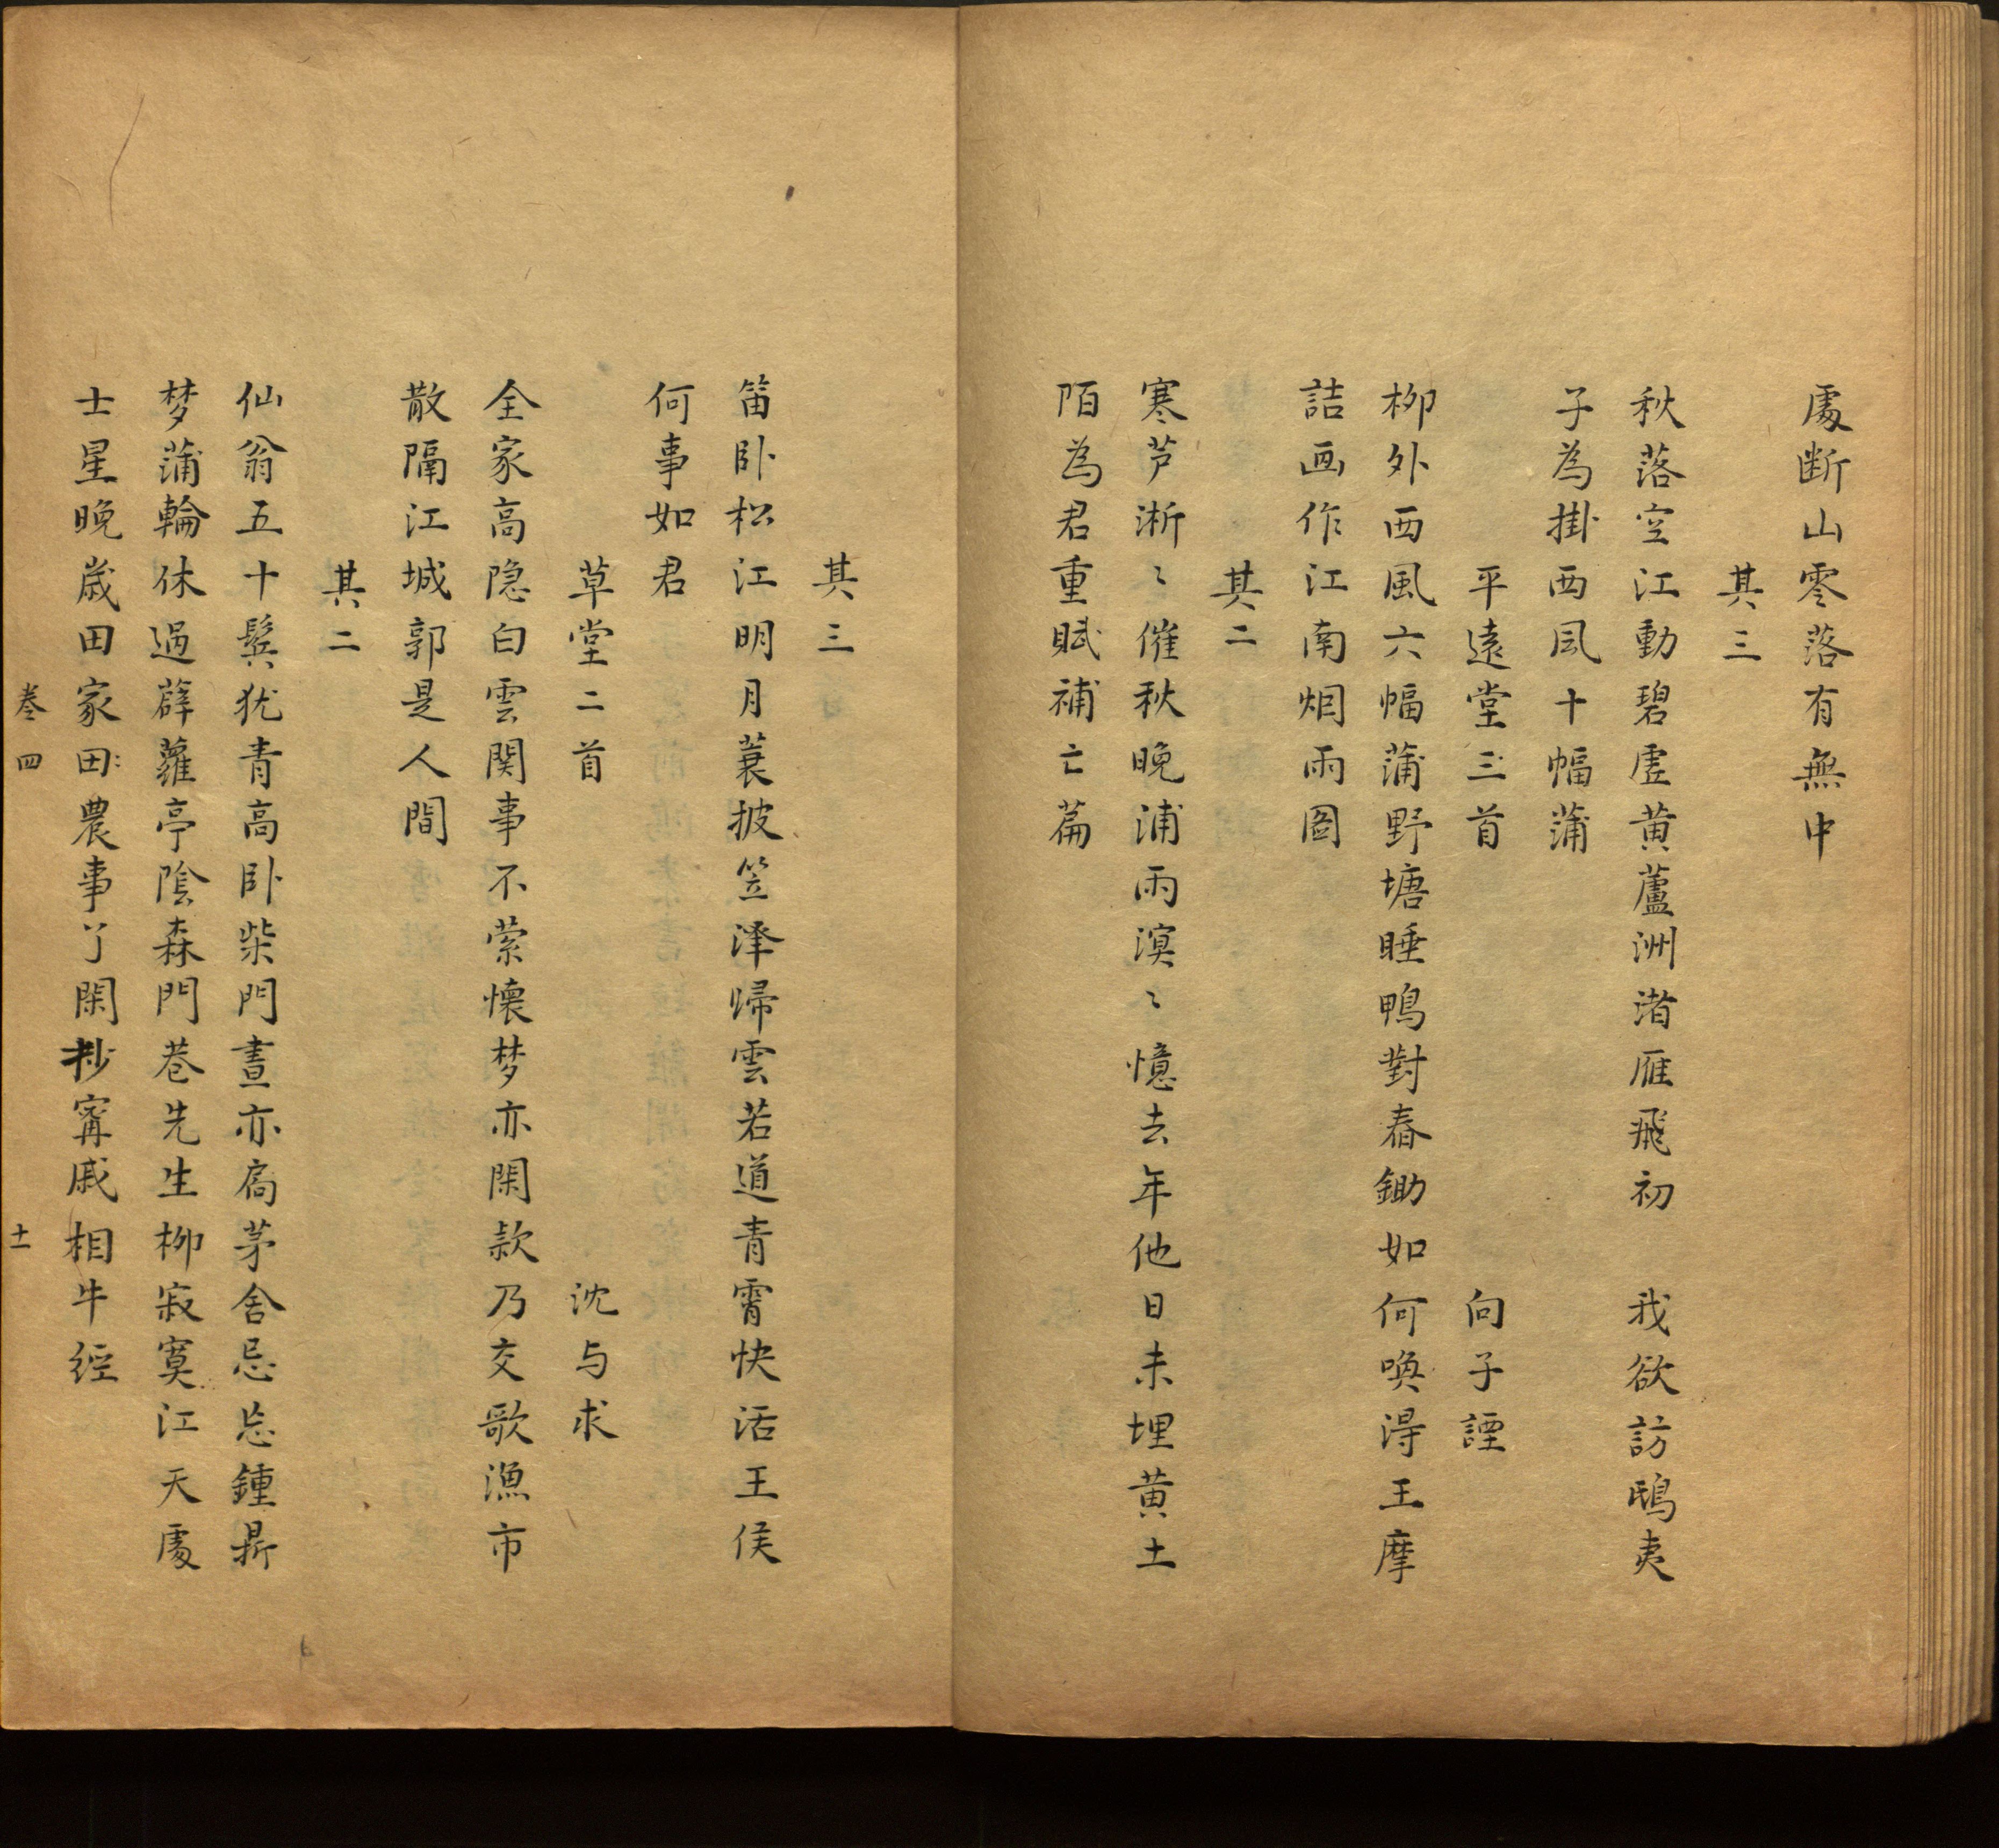 處断山零落有無中
其三
秋落空江動碧虛黄蘆洲渚雁飛初　我欲訪鴟夷
子為掛西風十幅蒲
平遠堂三首　向子諲
柳外西風六幅蒲野塘睡鴨對舂鋤如何喚得王摩
詰画作江南烟雨圖
其二
寒芦淅〻催秋晚浦雨溟〻憶去年他日未埋黄土
陌為君重賦補亡篇
其三
笛卧松江明月蓑披笠泽帰雲若道青霄快活王侯
何事如君
草堂二首　沈与求
全家高隐白雲関事不縈懷梦亦閑款乃交歌漁市
散隔江城郭是人間
其二
仙翁五十鬂犹青高卧柴門晝亦扃茅舍忌忘鍾鼎
梦蒲輪休過薜蘿亭陰森門巷先生柳寂寞江天處
士星晚歲田家田農事了閑抄甯戚相牛經
巻四　十一